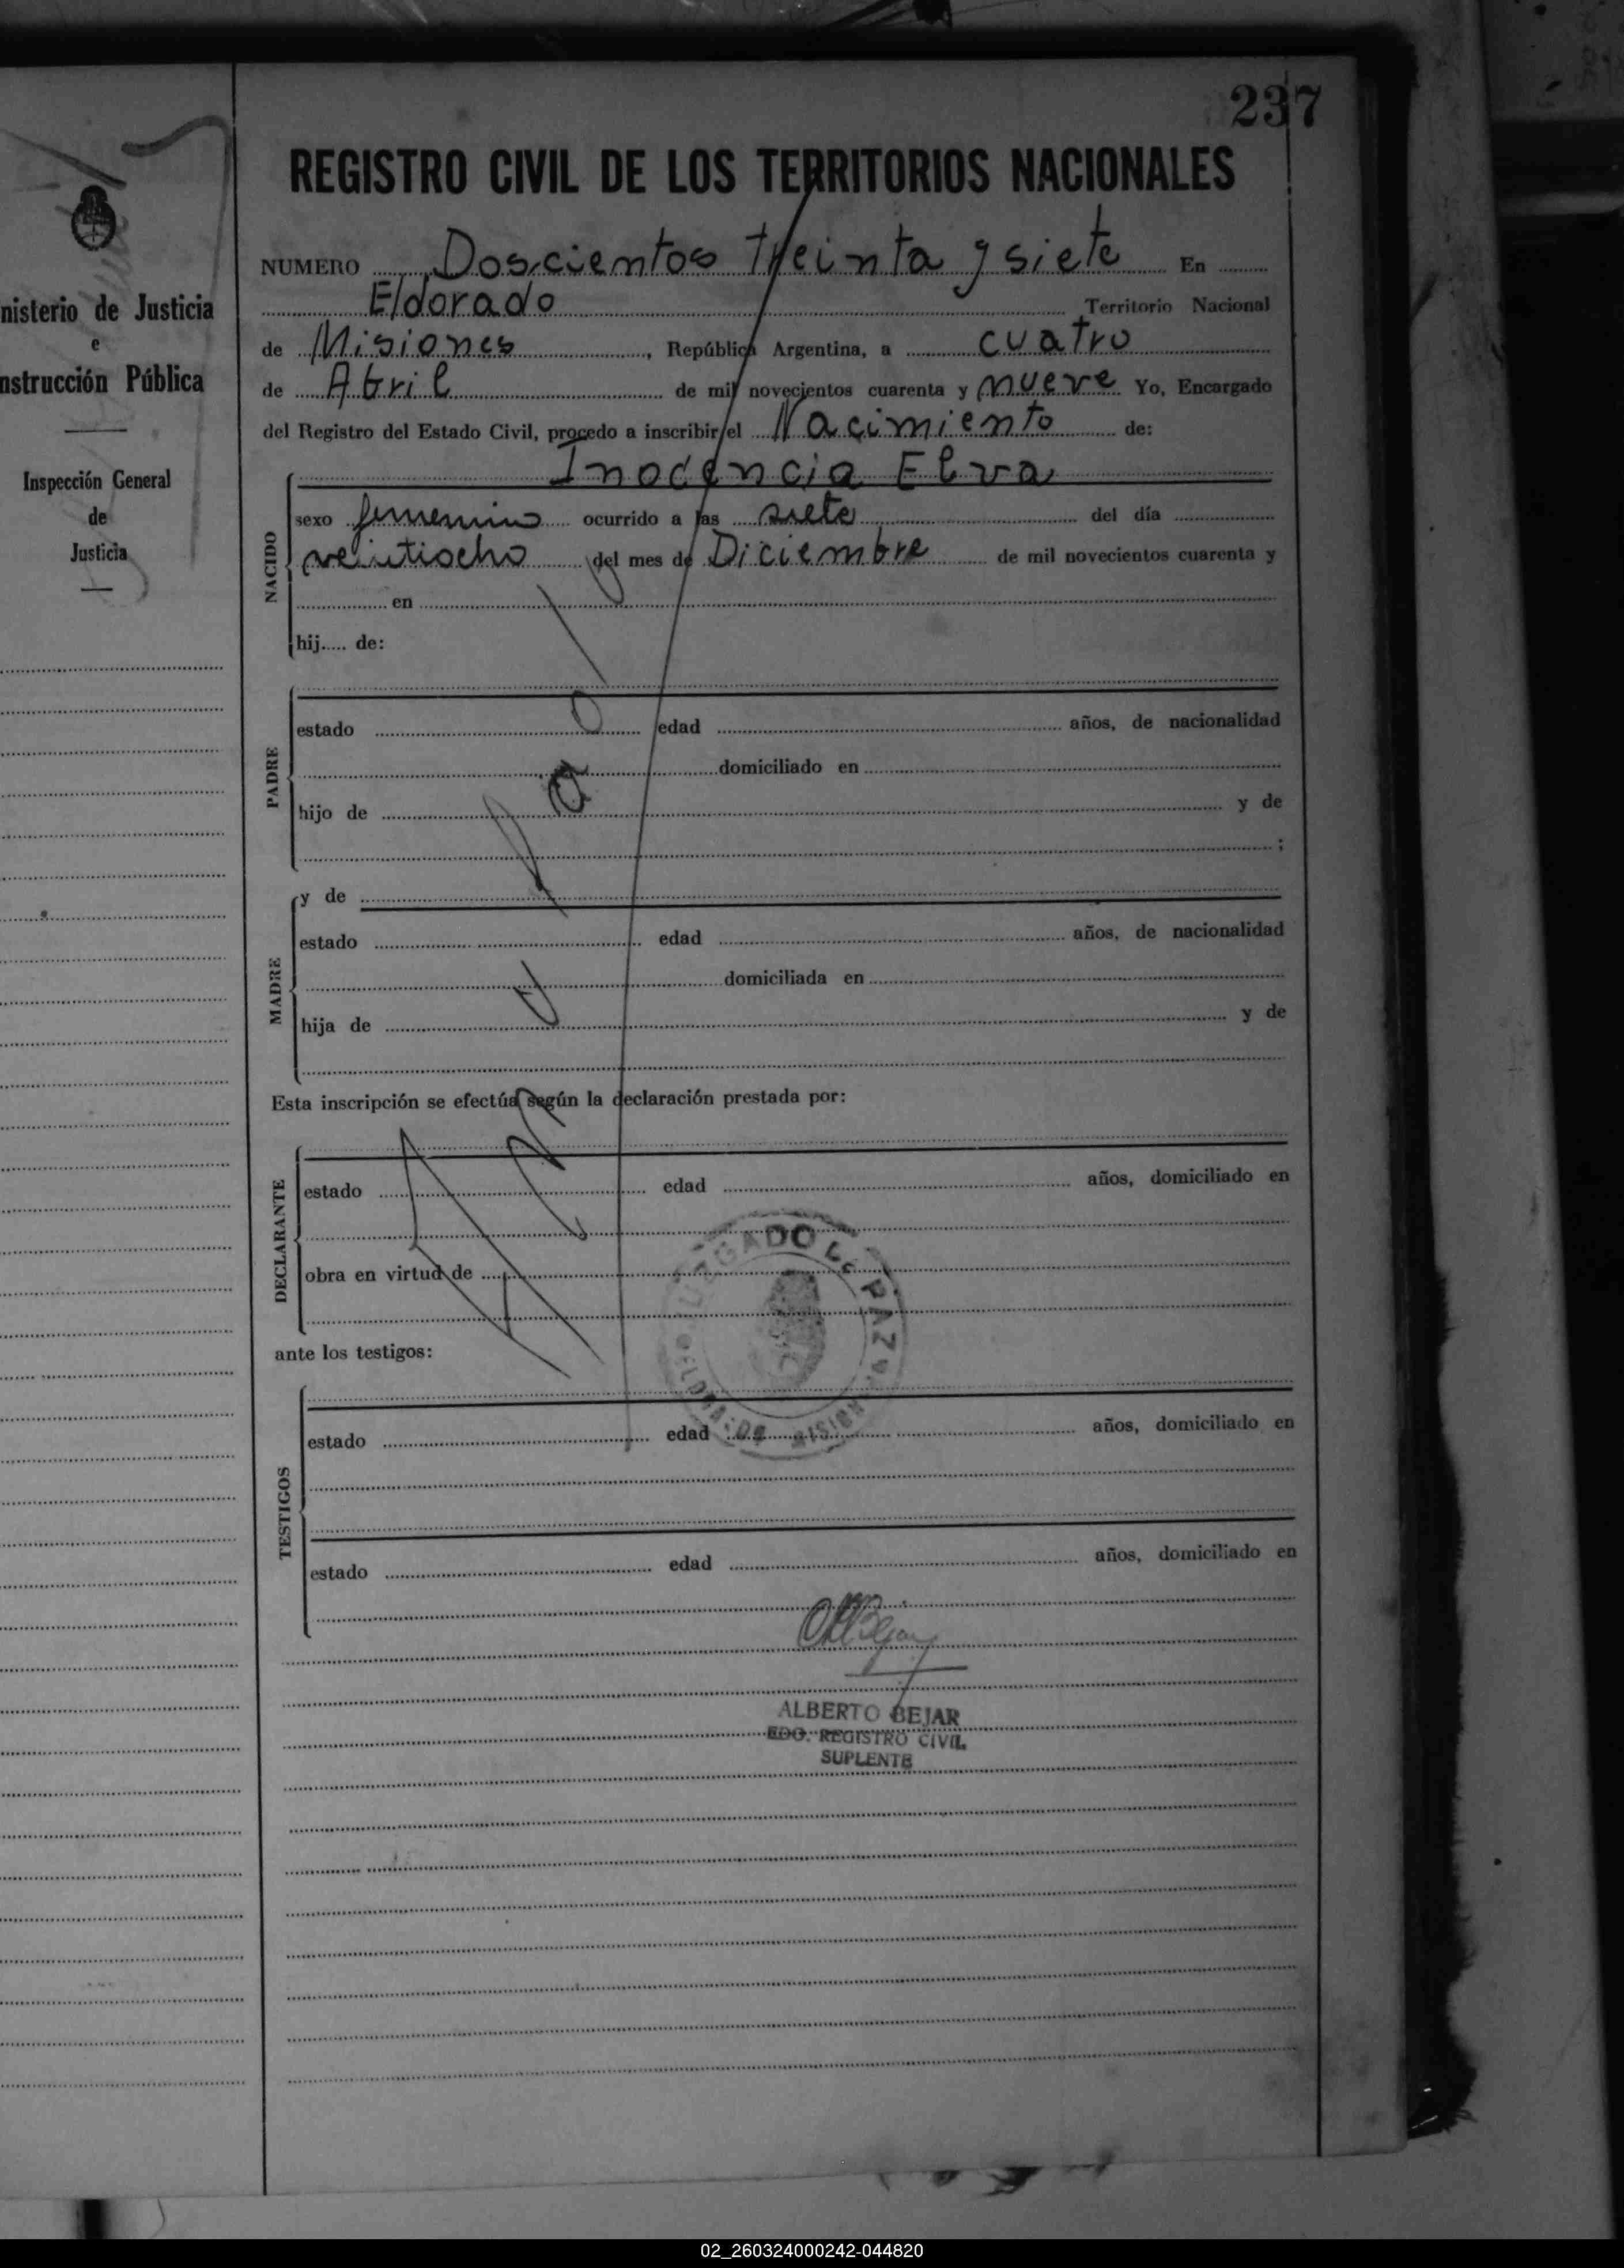 237
nisterio de Justicia
e
nstrucción Pública
Inspección General
de
Justicia
REGISTRO CIVIL DE LOS TERRITORIOS NACIONALES
NUMERO Doscientos treinta y siete En
Eldorado Territorio Nacional
de Misiones, República Argentina, a cuatro
de Abril de mil novecientos cuarenta y nueve Yo, Encargado
del Registro del Estado Civil, procedo a inscribir el Nacimiento de:
Inocencia Elva
NACIDO
sexo femenino ocurrido a las siete del día
veintiocho del mes de Diciembre de mil novecientos cuarenta y
en
hij..... de:
PADRE
estado edad años, de nacionalidad
domiciliado en
hijo de y de
;
MADRE
y de
estado edad años, de nacionalidad
domiciliada en
hija de y de
Anulado
Esta inscripción se efectúa según la declaración prestada por:
DECLARANTE
estado edad años, domiciliado en
obra en virtud de
JUZGADO DE PAZ
ELDORADO MISIONES
ante los testigos:
TESTIGOS
estado edad años, domiciliado en
estado edad años, domiciliado en
ALBERTO BEJAR
EDO. REGISTRO CIVIL
SUPLENTE
02_260324000242-044820